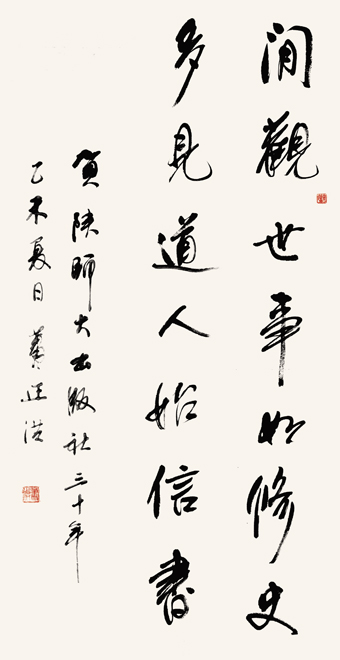 閒觀世事如修史
多見道人始信書
賀陝師大出版社三十年
乙未夏日